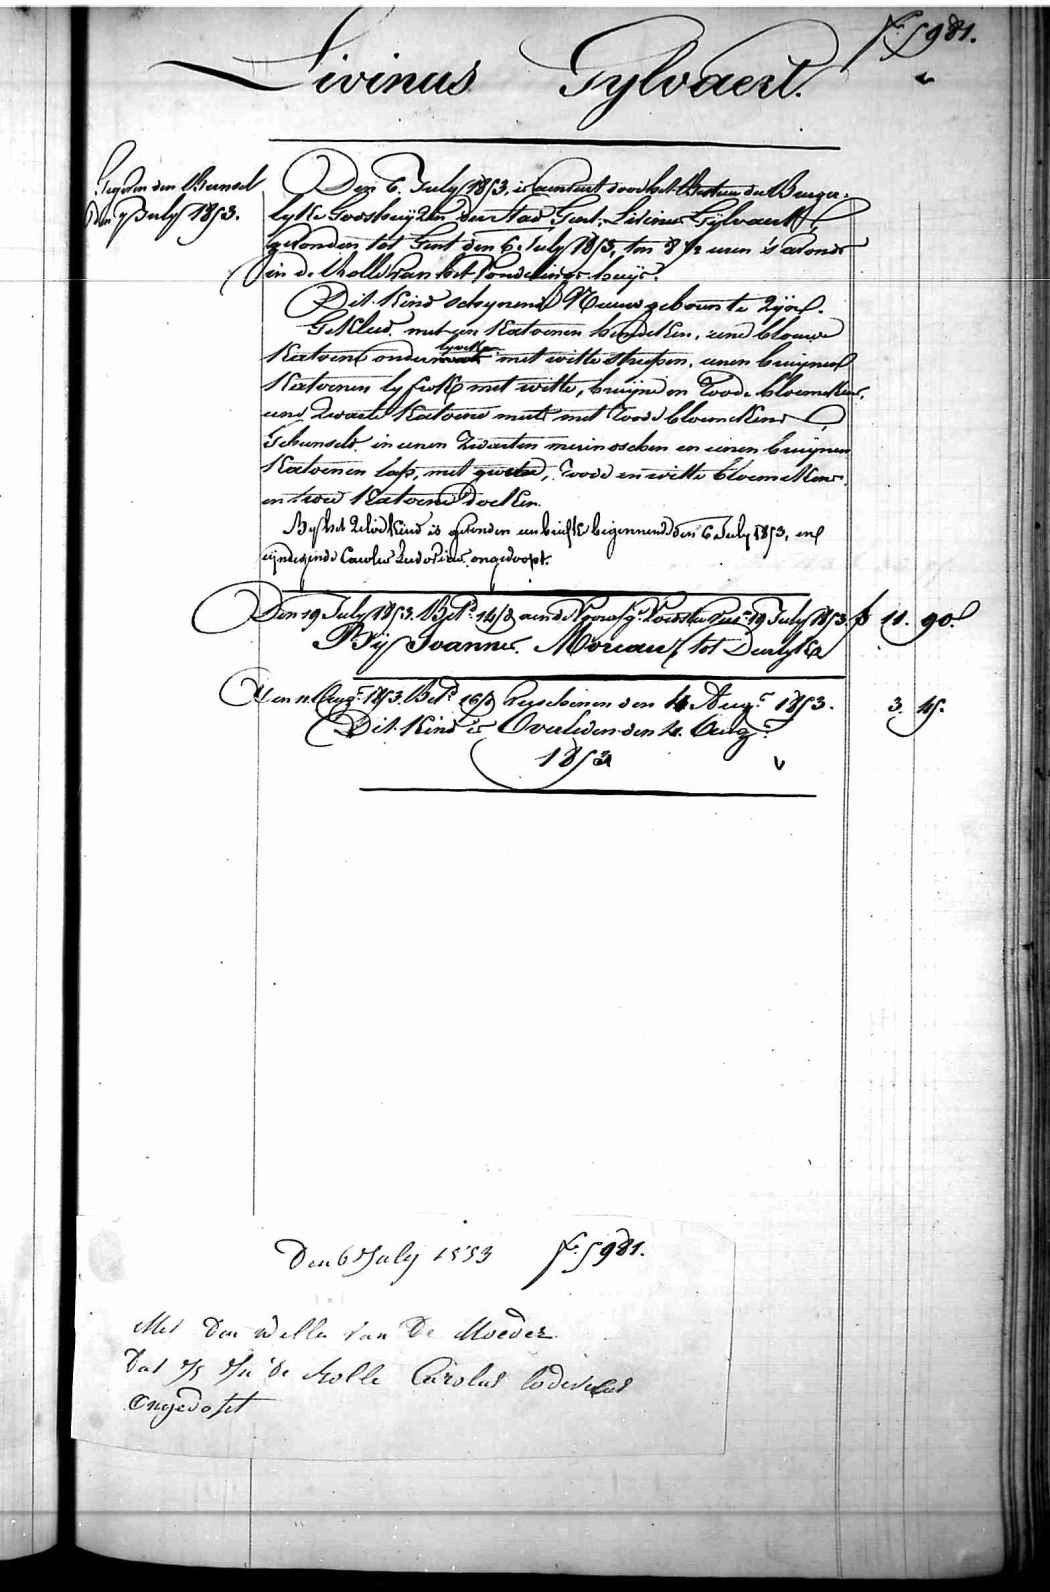 f.° 5981.
Livinus Gylvaert.
Gegeven den
den 7 July 1853.
Den 6. July 1853. is aenveert door het Bestuer der Burger-
lyke Godshuyzen der stad Gent, Livinus Gylvaert,
gevonden tot Gent den 6. July 1853, ten 8 ½ uren 's avonds
in de Rolle van het Vondelings-huys.
Dit Kind schynende Nieuwgeboren te zyn.
Gekleed met een Katoenen hemdeken, eene blauwe
Katoene onder lyveken met witte streepen, eenen bruynen
Katoenen lyfrok met witte, bruyne en roode bloemekens,
eene zwarte Katoene muts met roode bloemekens
Gebunseld in eenen zwarten merinoschen en eenen bruynen
Katoenen lap, met roode en witte bloemekens
en twee Katoene doeken.
By het zelve Kind is gevonden een briefke beginnende den 6 July 1853, en
eyndigende Carolus Ludovicus ongedoopt.
Den 19 July 1853. Bet.d aen de Voedster 19 July 1853. fr 11. 90.
By Joannes Moreau, tot Deurlyk
Den 11. Aug.t 1853. Bet.d verschenen den 4 Aug.t 1853. 3. 45.
Dit Kind is Overleden den 4. Aug.t
1853
Den 6 July 1853 f.° 5981.
Met den wille van De Moeder
Dat is in de Rolle Carolus lodevicus
Ongedopt